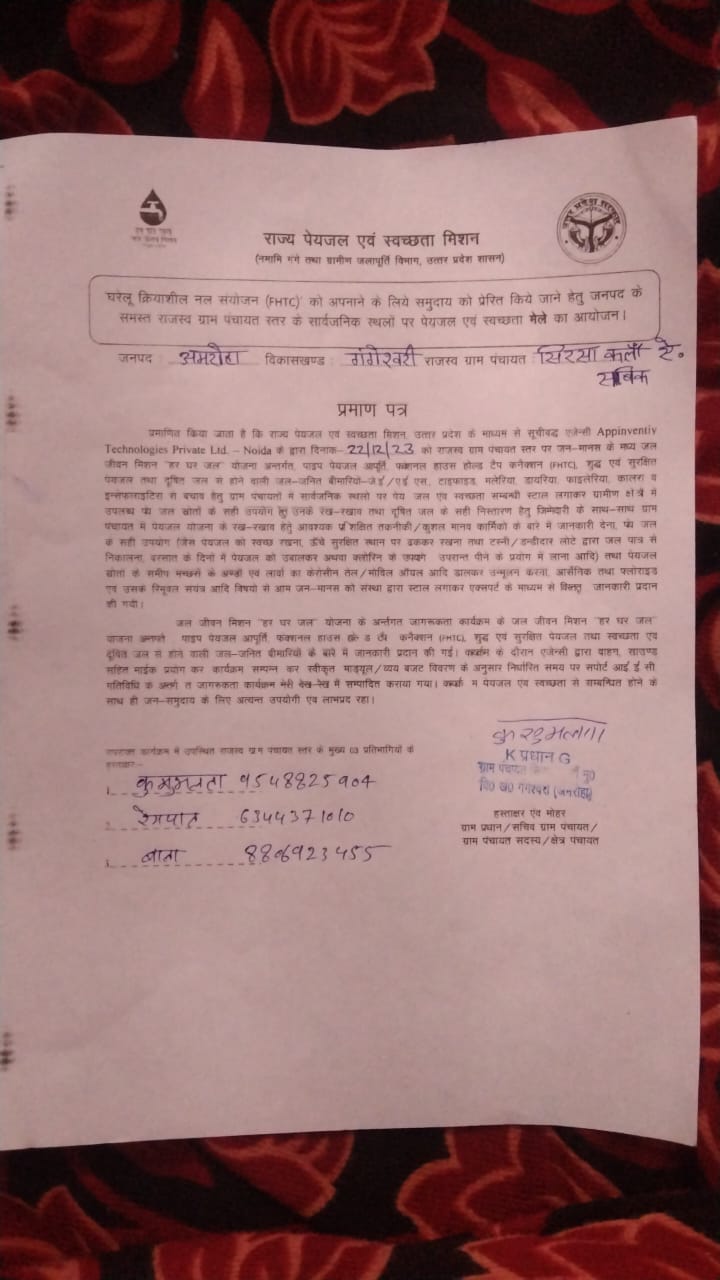 हर घर जल
जल जीवन मिशन
उत्तर प्रदेश सरकार
राज्य पेयजल एवं स्वच्छता मिशन
(नमामि गंगे तथा ग्रामीण जलापूर्ति विभाग, उत्तर प्रदेश शासन)
'घरेलू क्रियाशील नल संयोजन (FHTC)' को अपनाने के लिये समुदाय को प्रेरित किये जाने हेतु जनपद के
समस्त राजस्व ग्राम पंचायत स्तर के सार्वजनिक स्थलों पर पेयजल एवं स्वच्छता मेले का आयोजन।
जनपद : अमरोहा विकासखण्ड : गंगेश्वरी राजस्व ग्राम पंचायत : सिरसा कलाँ
प्रमाण पत्र
प्रमाणित किया जाता है कि राज्य पेयजल एवं स्वच्छता मिशन, उत्तर प्रदेश के माध्यम से सूचीबद्ध एजेन्सी Appinventiv
Technologies Private Ltd. – Noida के द्वारा दिनांक- 22/12/23 को राजस्व ग्राम पंचायत स्तर पर जन–मानस के मध्य जल
जीवन मिशन "हर घर जल" योजना अन्तर्गत, पाइप पेयजल आपूर्ति, फंक्शनल हाउस होल्ड टैप कनैक्शन (FHTC), शुद्ध एवं सुरक्षित
पेयजल तथा दूषित जल से होने वाली जल–जनित बीमारियों–जे.ई/एई एस, टाइफाइड, मलेरिया, डायरिया, फाइलेरिया, कालरा व
से बचाव हेतु ग्राम पंचायतों में सार्वजनिक स्थलों पर पेय जल एवं स्वच्छता सम्बन्धी स्टाल लगाकर ग्रामीण क्षेत्रों में
उपलब्ध पेय जल स्रोतों के सही उपयोग हेतु उनके रख–रखाव तथा दूषित जल के सही निस्तारण हेतु जिम्मेदारी के साथ–साथ ग्राम
पंचायत में पेयजल योजना के रख–रखाव हेतु आवश्यक प्रशिक्षित तकनीकी/कुशल मानव कार्मिकों के बारे में जानकारी देना, पेय जल
के सही उपयोग (जैसे पेयजल को स्वच्छ रखना, ऊँचे सुरक्षित स्थान पर ढककर रखना तथा टस्नी/डन्डीदार लोटे द्वारा जल पात्र से
निकालना, बरसात के दिनों में पेयजल को उबालकर अथवा क्लोरिन के उपयोग उपरान्त पीने के प्रयोग में लाना आदि) तथा पेयजल
स्रोतों के समीप मच्छरों के अण्डों एवं लार्वा का केरोसीन तेल/मोबिल ऑयल आदि डालकर उन्मूलन करना, आर्सेनिक तथा फ्लोराइड
एवं उसके रिमूवल संयंत्र आदि विषयों से आम जन–मानस को संस्था द्वारा स्टाल लगाकर एक्सपर्ट के माध्यम से विस्तृत जानकारी प्रदान
की गयी।
जल जीवन मिशन "हर घर जल" योजना के अर्न्तगत जागरूकता कार्यक्रम के जल जीवन मिशन "हर घर जल"
योजना अन्तर्गत पाइप पेयजल आपूर्ति, फंक्शनल हाउस कनैक्शन (FHTC), शुद्ध एवं सुरक्षित पेयजल तथा स्वच्छता एवं
दूषित जल से होने वाली जल–जनित बीमारियों के बारे में जानकारी प्रदान की गई। के दौरान एजेन्सी द्वारा वाहन, साउण्ड
सहित माईक प्रयोग कर कार्यक्रम सम्पन्न कर स्वीकृत माड्यूल/व्यय बजट विवरण के अनुसार निर्धारित समय पर सपोर्ट आई ई सी
गतिविधि के अंतर्गत जागरुकता कार्यक्रम मेरी देख–रेख में सम्पादित कराया गया। में पेयजल एवं स्वच्छता से सम्बन्धित होने के
साथ ही जन–समुदाय के लिए अत्यन्त उपयोगी एवं लाभप्रद रहा।
उपरोक्त कार्यक्रम में उपस्थित राजस्व ग्राम पंचायत स्तर के मुख्य 03 प्रतिभागियों के
हस्ताक्षर:–
1. कुसुमलता 9548825904
2. 6344371010
3. 8806923455
कुसुमलता
K प्रधान G
ग्राम पंचायत
हस्ताक्षर एंव मोहर
ग्राम प्रधान/सचिव ग्राम पंचायत/
ग्राम पंचायत सदस्य/क्षेत्र पंचायत